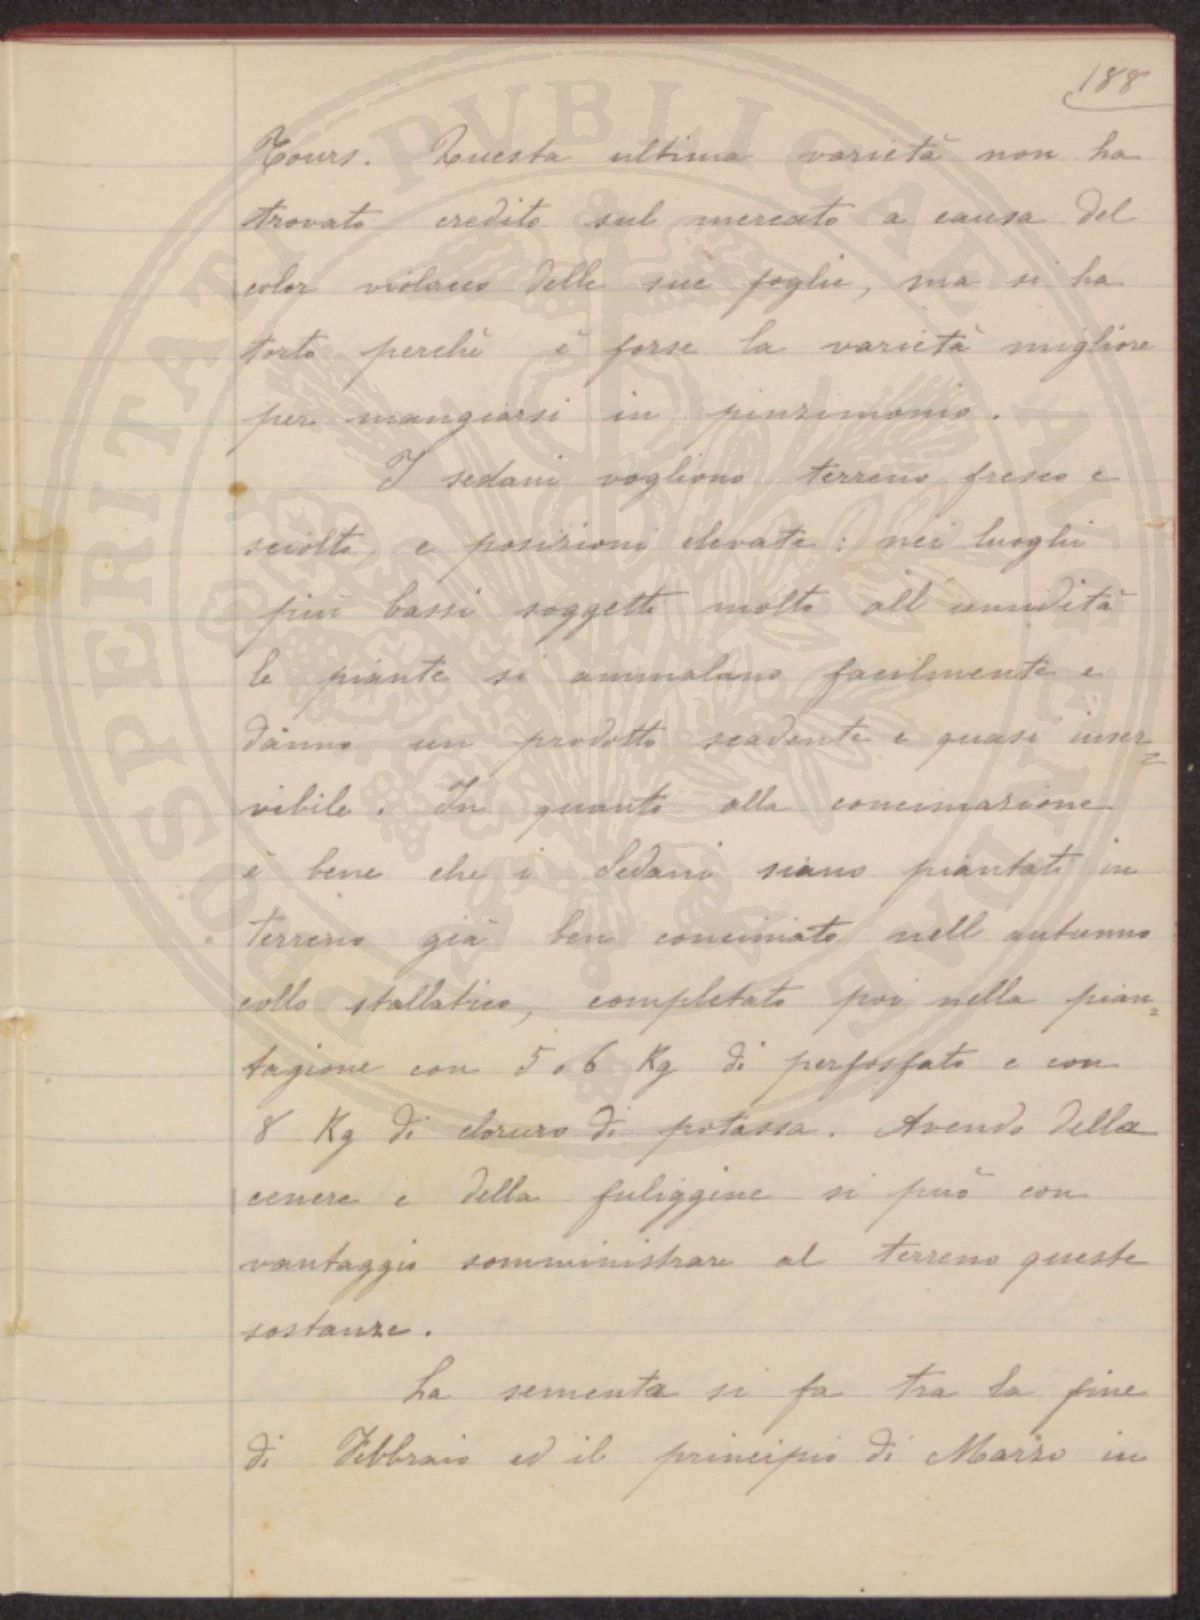 188
Tours. Questa ultima varietà non ha
trovato credito sul mercato a causa del
color violaceo delle sue foglie, ma si ha
torto perchè è forse la varietà migliore
per mangiarsi in pinzimonio.
I sedani vogliono terreno fresco e
sciolto, e posizioni elevate: nei luoghi
più bassi soggetti molto all'umidità
le piante si ammalano facilmente e
dànno un prodotto scadente e quasi inser=
vibile. In quanto alla concimazione
è bene che i Sedani siano piantati in
terreno già ben concimato nell'autunno
collo stallatico, completato poi nella pian=
tagione con 5 o 6 Kg di perfosfato e con
8 Kg di cloruro di potassa. Avendo della
cenere e della fuliggine si può con
vantaggio somministrare al terreno queste
sostanze.
La sementa si fa tra la fine
di Febbraio ed il principio di Marzo in
PROSPERITATI PVBLICAE AVGENDAE